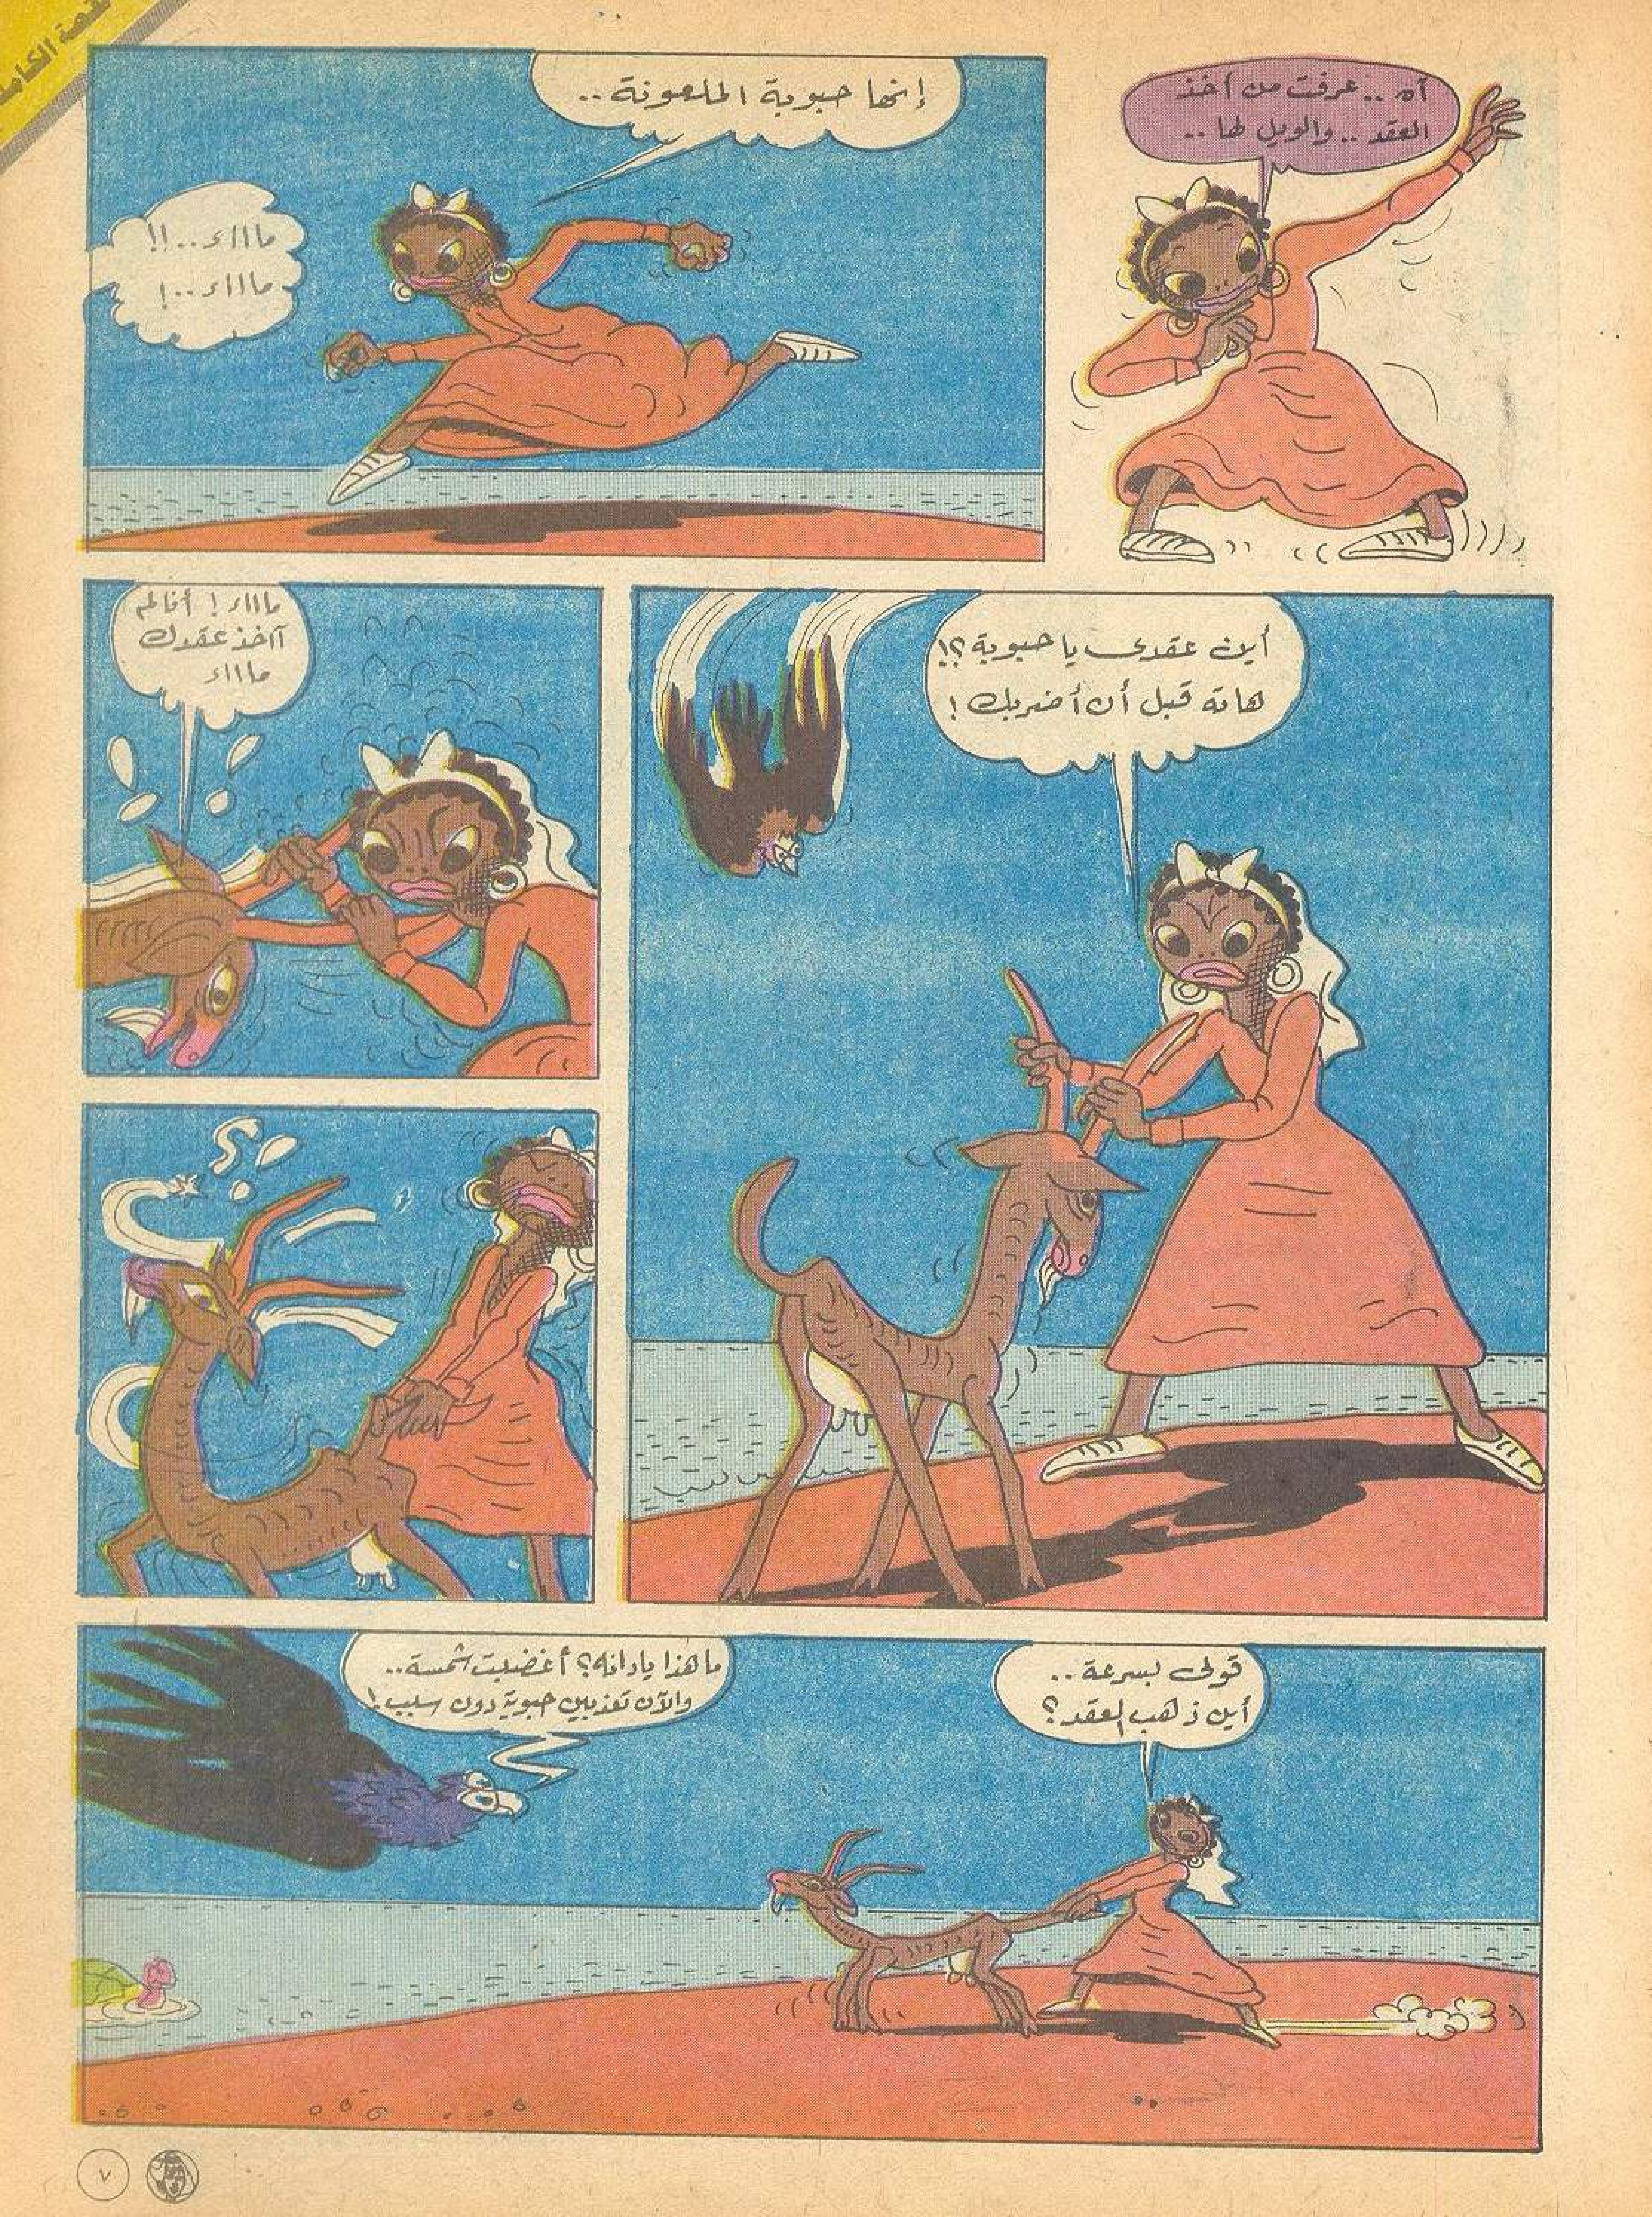 القصة الكاملة
آه .. عرفت من أخذ
العقد .. والويل لها ..
إنها حبوبة الملعونة ..
ماااء..!!
ماااء..!
أين عقدى يا حبوبة ؟!
هاته قبل أن أضربك !
ماااء ! أنا لم
آخذ عقدك
ماااء
قولى بسرعة ..
أين ذهب العقد ؟
ما هذا يا دانه ؟ أغضبت شمسة ..
والآن تعذبين حبوبة دون سبب !
٧